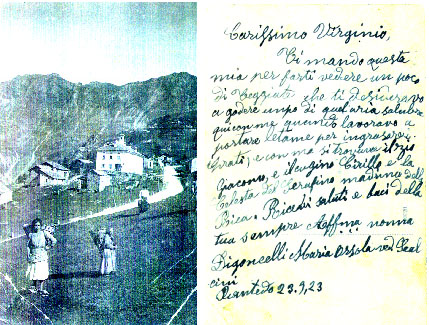 Carissimo Virginio,
Ti mando questa
mia per farti vedere un poco
di che ti desideravo
a godere un pò di quel aria salubre
qui con me quanto lavoravo a
portare letame per ingrassare i
prati, e con me si trovava il zio
Giacomo, e il cugino Cirillo e la
Celesta del Serafino
Ricevi saluti e baci della
tua sempre aff.ma nonna
Digoncelli Maria Orsola ved.
cini
Piantedo 23.9.23